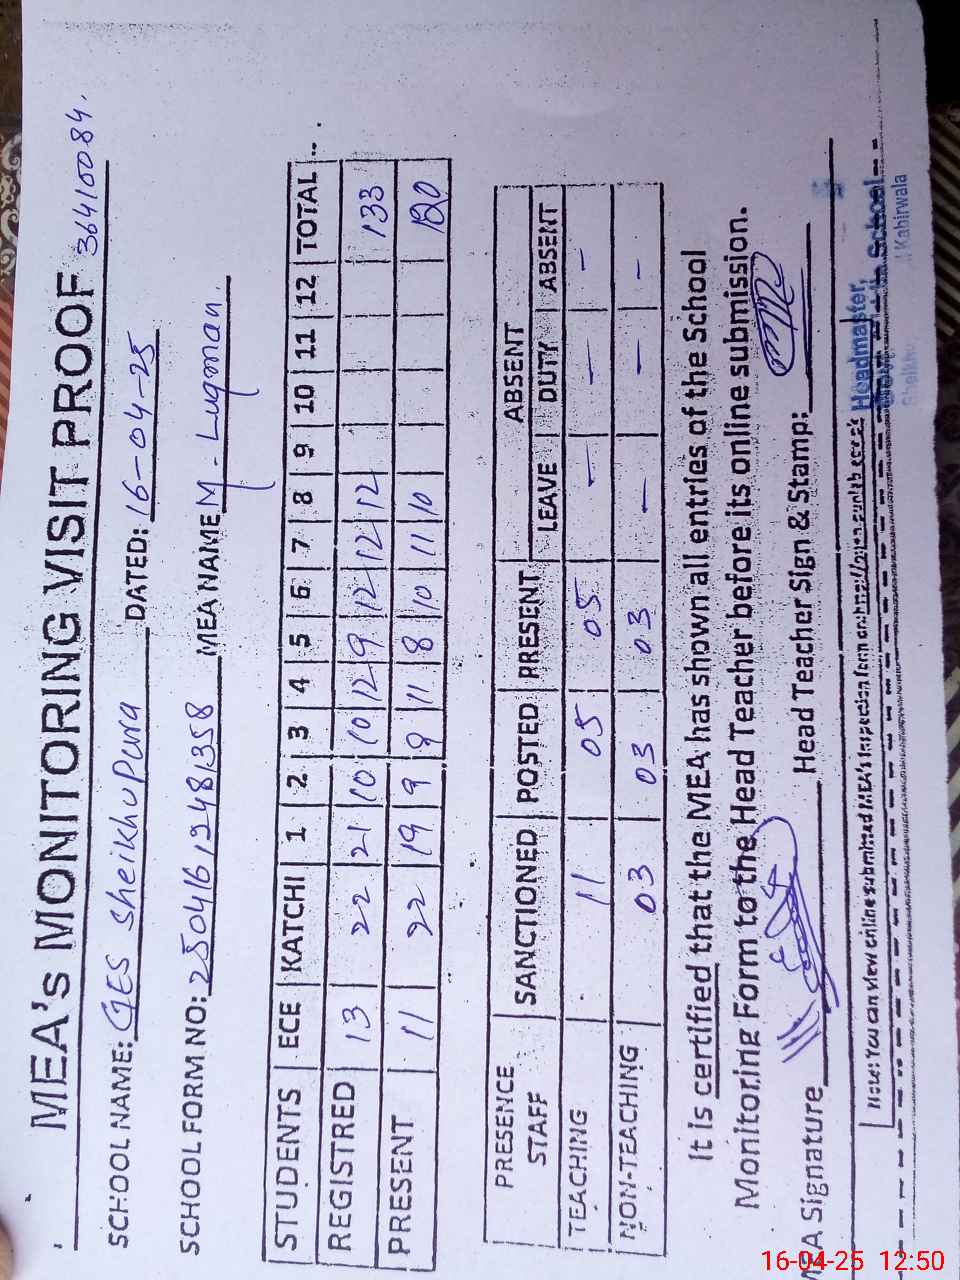 MEA's MONITORING VISIT PROOF
36410084.
SCHOOL NAME: GES Sheikhupura DATED: 16-04-25
SCHOOL FORM NO: 25041612481358 MEA NAME M. Luqman.
STUDENTS ECE KATCHI 1 2 3 4 5 6 7 8 9 10 11 12 TOTAL
REGISTRED 13 22 21 10 10 12 9 12 12 12 133
PRESENT 11 22 19 9 9 11 8 10 11 10 120
PRESENCE STAFF SANCTIONED POSTED PRESENT ABSENT
LEAVE DUTY ABSENT
TEACHING 11 05 05 — — –
NON-TEACHING 03 03 03 — — –
It is certified that the MEA has shown all entries of the School
Monitoring Form to the Head Teacher before its online submission.
MEA Signature Head Teacher Sign & Stamp:
Note: You can view online submitted MEA's Inspection form on
Headmaster,
School
Kahirwala
16-04-25 12:50